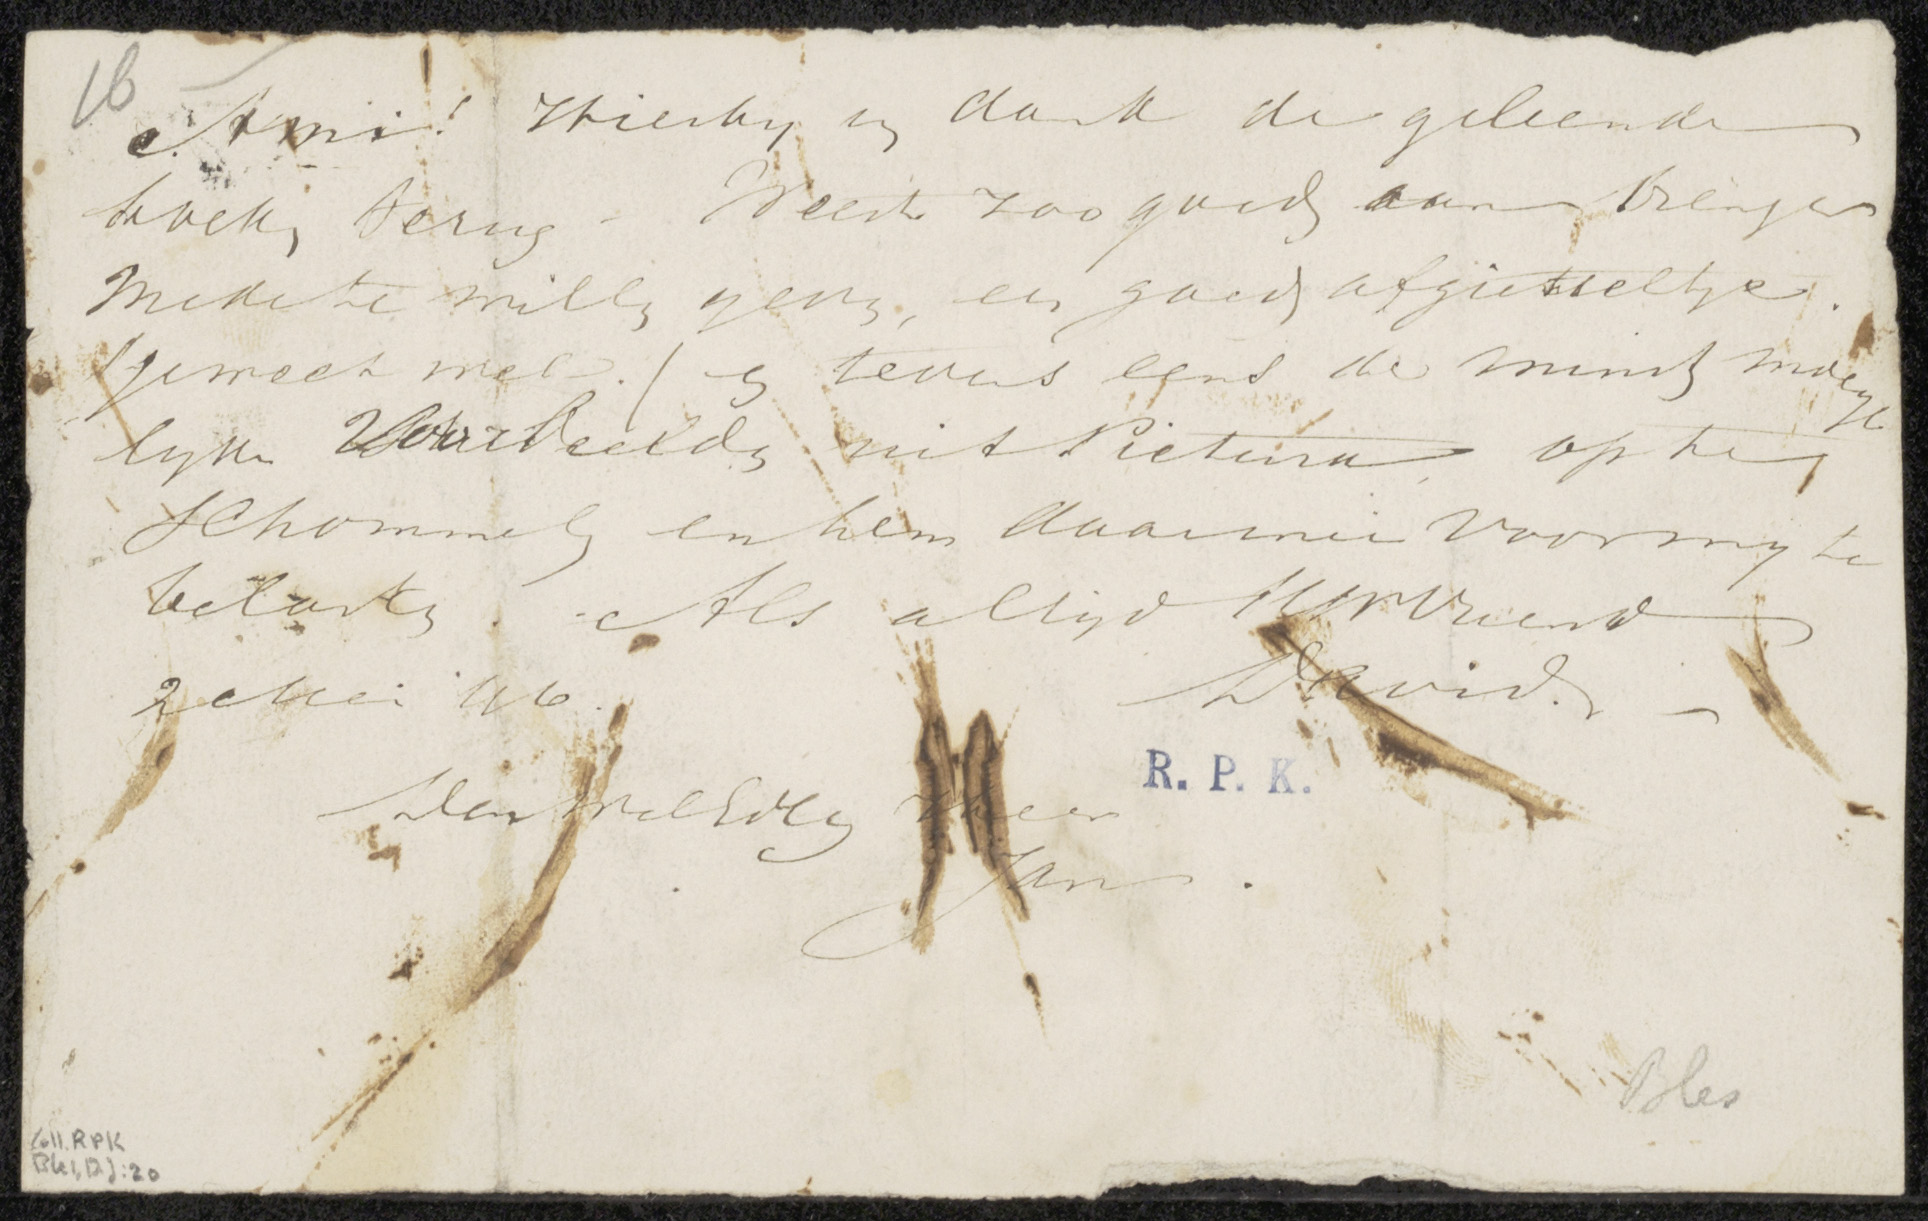 16
Ami! Hierby en dank de geleende
boeken terug - Weest zoo goed aan brenger
mede te willen geven, een goed afgietseltje.
(geweest met.) en tevens eens de minst moeye
lyke voorbeelden uit Pictura, op te
schommelen en hem daarmee voor my te
belasten. Als altyd Uw Vriend
2 Mei 46. David. -
Den WelEdlen Heer
Jan.
R. P. K.
Bles
Coll. RPK
Bles, D J: 20